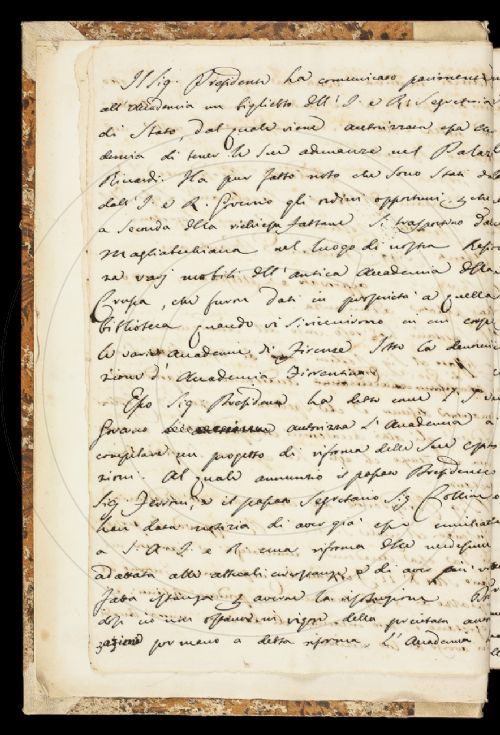 Il Sig. Presidente ha comunicato
all'Accademia un biglietto dell'I. e R. Segreteria
di Stato, dal quale viene autorizzata essa
demia di tener le sue adunanze nel Palaz
Ricardi. Ha pur fatto noto che sono stati
dall'I. e R. Governo gli ordini opportuni che
a seconda della richiesta fattane si trasportino dalla
Magliabechiana nel luogo di nostra Residen
za varj mobili dell'antica Accademia della
Crusca, che furon dati in proprietà a quella
biblioteca quando si riunirono in un corpo
le varie Accademie di Firenze sotto la denomina
zione d'Accademia Fiorentina
Esso Sig. Presidente ha detto come l'I. e
Governo autorizza l'Accademia a
compilare un progetto di riforma delle sue
zioni. Al quale annunzio il passato Presidente
Sig. Ferroni, e il passato Segretario Sig. Collini
han data notizia di aver già
a S. A. I. e R. una riforma delle medesime
adattata alle attuali circostanze, e di aver
fatta istanza
in vigore della
zazione per mano a detta riforma. L'Accademia